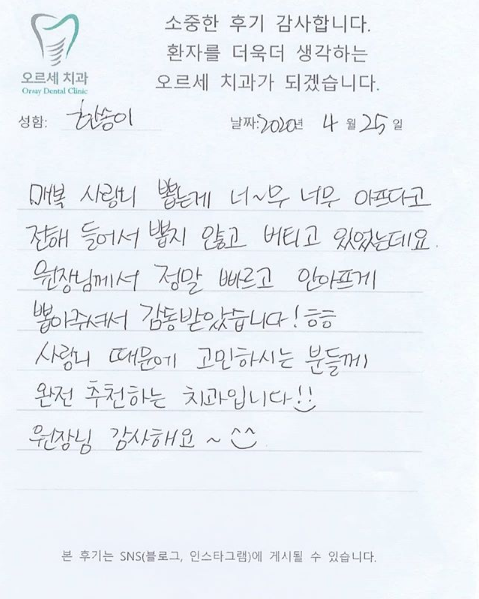 소중한 후기 감사합니다.
환자를 더욱더 생각하는
오르세 치과가 되겠습니다.
오르세 치과
Orsay Dental Clinic
성함: 한송이
날짜:2020년 4월 25일
매복 사랑니 뽑는게 너~무 너무 아프다고
전해 들어서 뽑지 않고 버티고 있었는데요.
원장님께서 정말 빠르고 안아프게
뽑아주셔서 감동받았습니다! ㅎㅎ
사랑니 때문에 고민하시는 분들께
완전 추천하는 치과입니다!!
원장님 감사해요 ~ ^^
본 후기는 SNS(블로그, 인스타그램)에 게시될 수 있습니다.